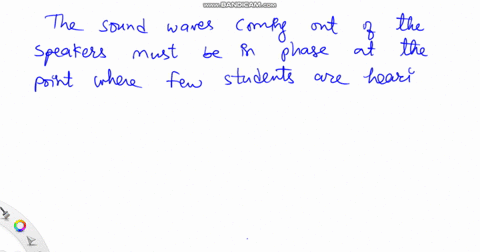 www.BANDICAM.com
The sound waves coming out of the
speakers must be in phase at the
point where few students are heari